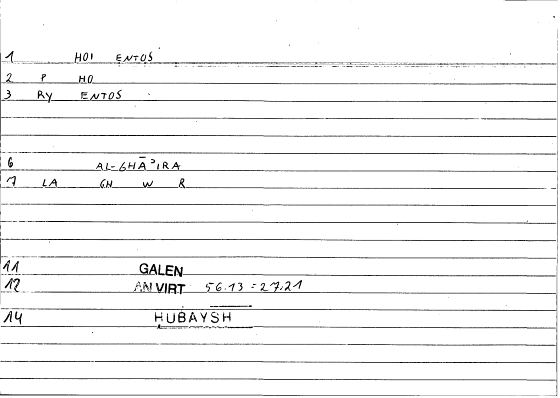 1 HOI ENTOS
2 P HO
3 RY ENTOS
6 AL-GHĀʾIRA
7 LA GH W R
11 GALEN
12 AN VIRT 56.13 = 27.21
14 HUBAYSH